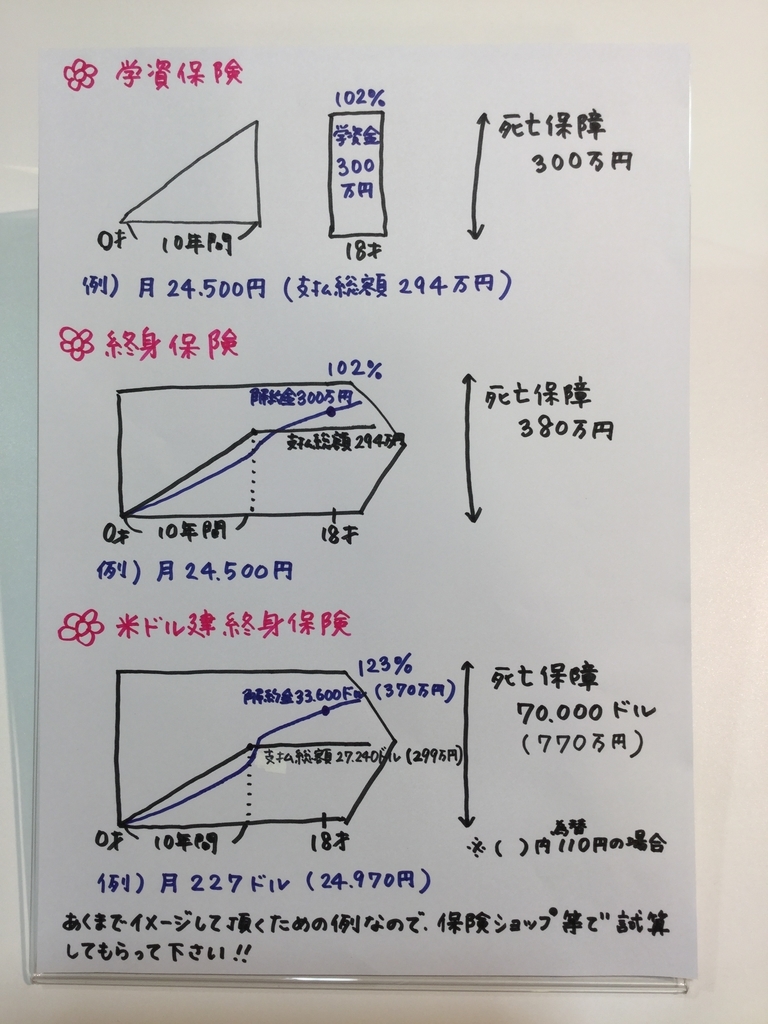 学資保険
102%
学資金
300
万円
死亡保障
300万円
0才
10年間
18才
例) 月24.500円 (支払総額294万円)
終身保険
102%
解約金300万円
支払総額294万円
死亡保障
380万円
0才
10年間
18才
例) 月24.500円
米ドル建終身保険
123%
解約金33.600ドル (370万円)
支払総額27.240ドル (299万円)
死亡保障
70.000ドル
(770万円)
0才
10年間
18才
為替
※( )内110円の場合
例) 月227ドル (24.970円)
あくまでイメージして頂くための例なので、保険ショップ等で試算
してもらって下さい!!